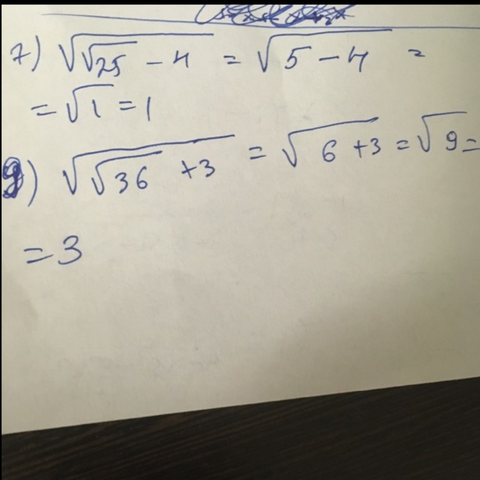 7) √(√25 - 4) = √(5 - 4) =
= √1 = 1
9) √(√36 + 3) = √(6 + 3) = √9 =
= 3